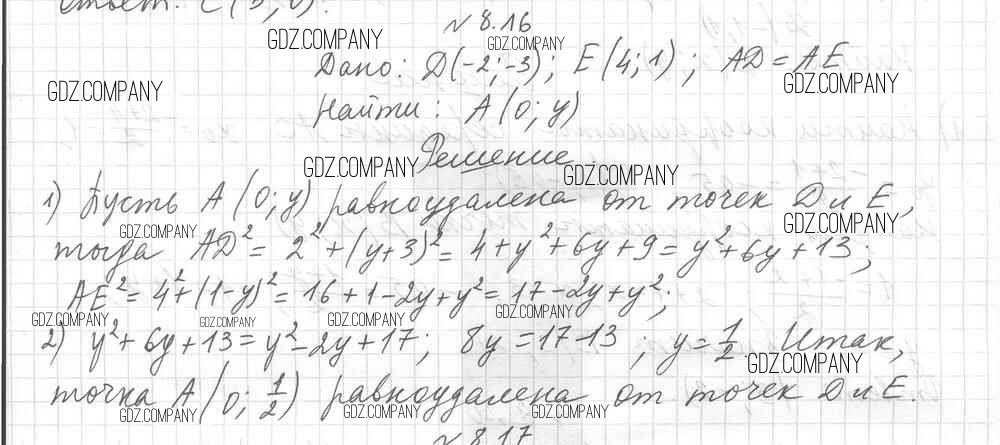 Ответ: C(3; 0).
№ 8.16
GDZ.COMPANY GDZ.COMPANY
Дано: D(-2; -3); E(4; 1); AD = AE
GDZ.COMPANY GDZ.COMPANY
Найти: A(0; y)
Решение
GDZ.COMPANY GDZ.COMPANY
1) Пусть A(0; y) равноудалена от точек D и E,
GDZ.COMPANY GDZ.COMPANY
тогда AD² = 2² + (y+3)² = 4 + y² + 6y + 9 = y² + 6y + 13;
AE² = 4² + (1-y)² = 16 + 1 - 2y + y² = 17 - 2y + y²;
GDZ.COMPANY GDZ.COMPANY GDZ.COMPANY GDZ.COMPANY
2) y² + 6y + 13 = y² - 2y + 17; 8y = 17-13; y = 1/2. Итак,
GDZ.COMPANY
точка A(0; 1/2) равноудалена от точек D и E.
GDZ.COMPANY GDZ.COMPANY GDZ.COMPANY
№ 8.17